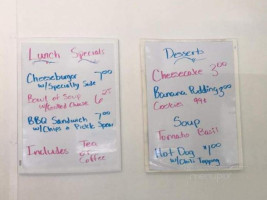 Lunch Specials
Cheeseburger 7.00
w/Specialty Side
Bowl of Soup 6.25
w/Grilled Cheese
BBQ Sandwich 7.00
w/Chips + Pickle Spear
Includes Tea
or
Coffee
Desserts
Cheesecake 3.00
Banana Pudding 2.00
Cookies 99¢
Soup
Tomato Basil
Hot Dog $1.00
w/Chili Topping